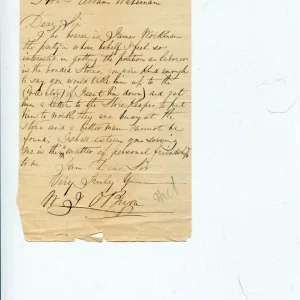 Abram Wakeman
Dear Sir
The bearer is James Workman
the party in whose behalf I feel so
interested in getting the position as laborer
in the bonded Stores, you were kind enough
to say you would take him up to the
(if I sent him down) and get
him a letter to the Store Keeper to put
him to work, they are busy at the
store and a better man cannot be
found, I shall esteem you serving
me in this matter of personal friendship
to me
I am Dear Sir
Very Truly Yours
W J O'Brien